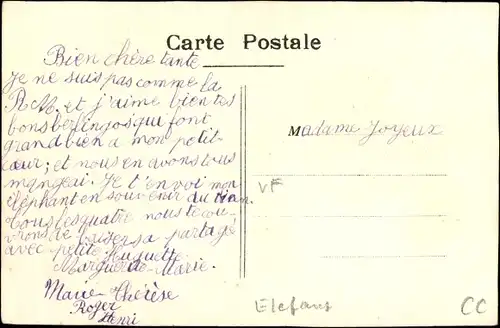 Carte Postale
Bien chère tante
Je ne suis pas comme la
R M. et j'aime bien tes
bons berlingos qui font
grand bien a mon petit
cœur; et nous en avons tous
mangeai. Je t'envoi mon
éléphant en souvenir du
tous les quatre nous te cou-
vrons de baisers a partagé
avec petite Huguette
Marguerite-Marie.
Marie-Thérèse
Roger
Henri
Madame Joyeux
VF
Elefans
CC